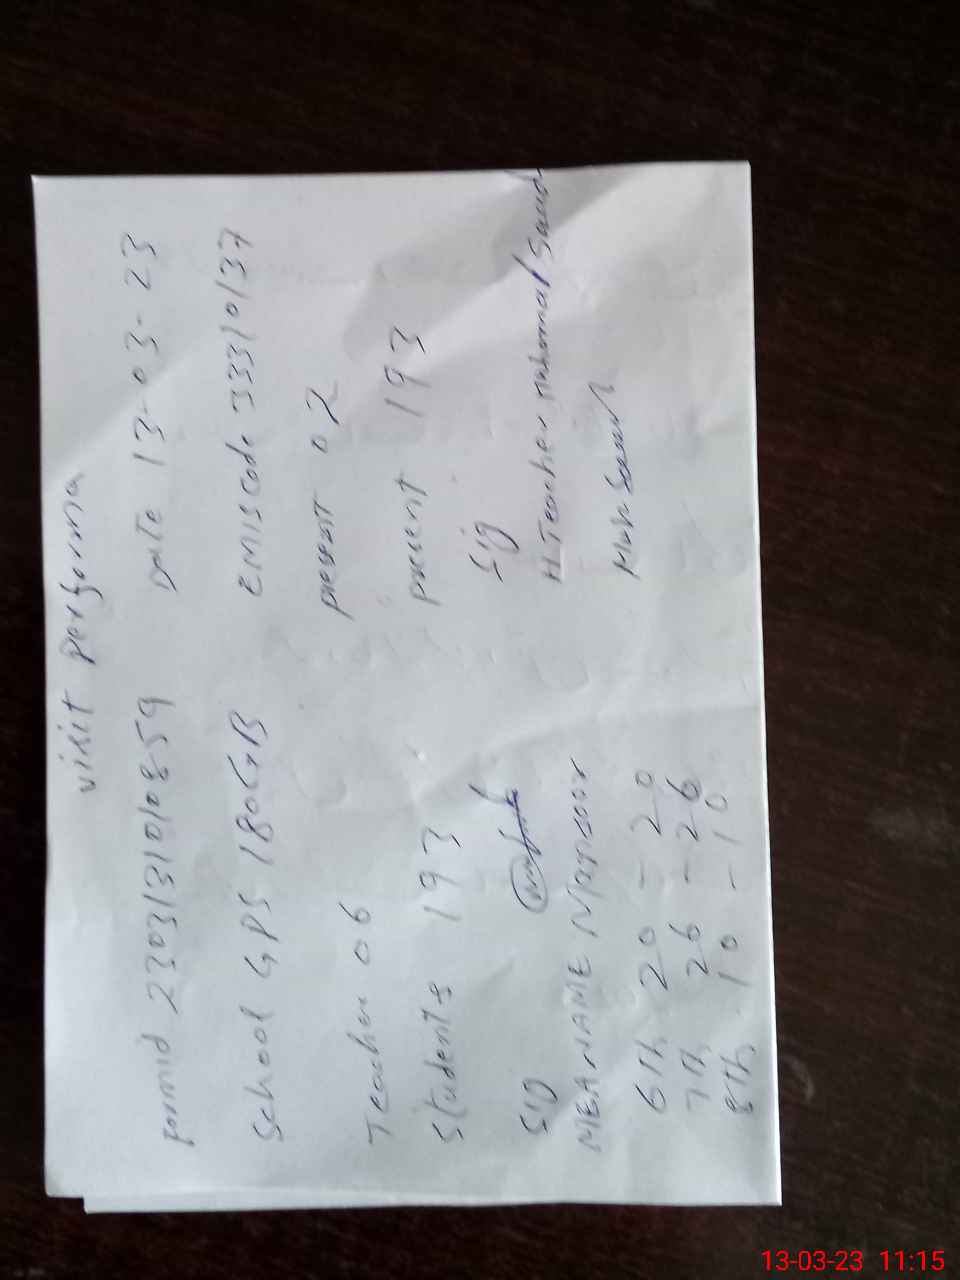 visit performa
Formid 2303131010859 Date 13-03-23
School GPS 180GB EMIS code 33310137
Teacher 06 present 02
Students 193 present 193
Sig Sig
MEA NAME H.Teacher Mahomal Saud
6Th 20 - 20
7Th 26 - 26
8Th 10 - 10
13-03-23 11:15